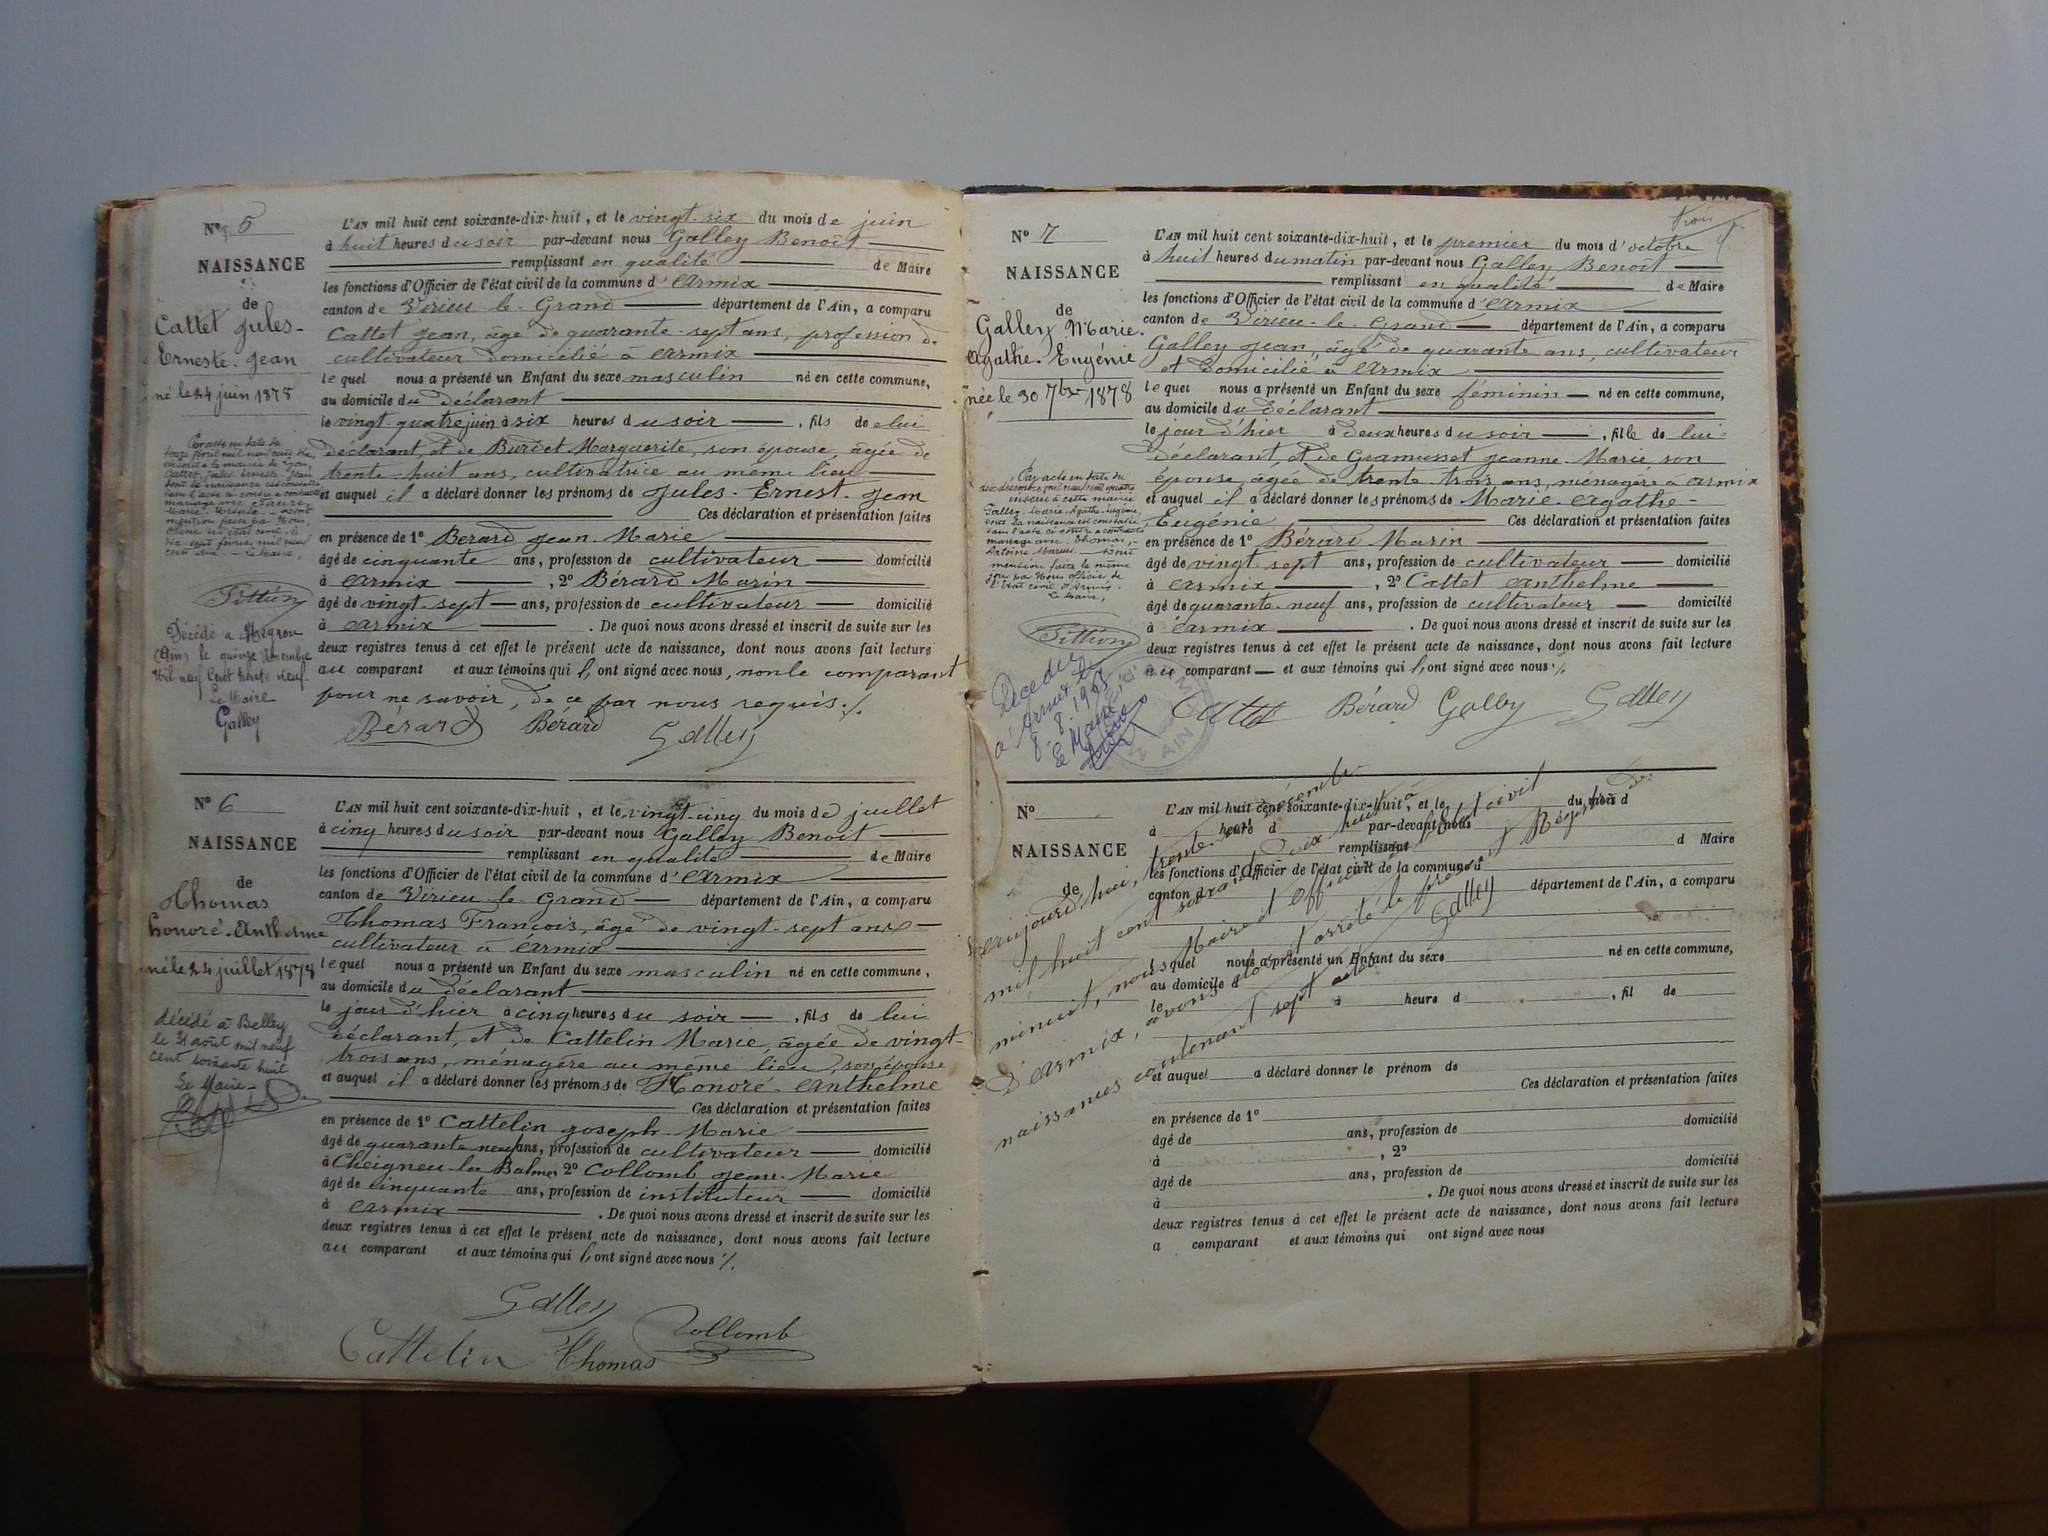 N° 5
NAISSANCE
de
Cattet Jules-
Erneste-Jean
né le 24 juin 1878
Par acte en date du
Tittion
Décédé à
(Ain) le quinze novembre
Mil neuf Cent trente neuf
Le Maire
Galley
L'AN mil huit cent soixante-dix-huit, et le vingt-six du mois de juin
à huit heures du soir par-devant nous Galley Benoît
remplissant en qualité de Maire
les fonctions d'Officier de l'état civil de la commune d'Armix
canton de Virieu-le-Grand département de l'Ain, a comparu
Cattet Jean, âgé de quarante-sept ans, profession de
cultivateur domicilié à Armix
lequel nous a présenté un Enfant du sexe masculin né en cette commune,
au domicile du déclarant
le vingt-quatre juin à six heures du soir, fils de lui
déclarant, et de Burdet Marguerite, son épouse, âgée de
trente-huit ans, cultivatrice au même lieu
et auquel il a déclaré donner les prénoms de Jules-Ernest-Jean
Ces déclaration et présentation faites
en présence de 1° Berard Jean-Marie
âgé de cinquante ans, profession de cultivateur domicilié
à Armix, 2° Bérard Marin
âgé de vingt-sept ans, profession de cultivateur domicilié
à Armix. De quoi nous avons dressé et inscrit de suite sur les
deux registres tenus à cet effet le présent acte de naissance, dont nous avons fait lecture
au comparant et aux témoins qui l'ont signé avec nous, non le comparant
pour ne savoir, de ce par nous requis ./.
Bérard Bérard Galley
N° 6
NAISSANCE
de
Thomas
honoré-Anthelme
né le 24 juillet 1878
décédé à Belley
le 31 août mil neuf
cent soixante huit
Le Maire
L'AN mil huit cent soixante-dix-huit, et le vingt-cinq du mois de juillet
à cinq heures du soir par-devant nous Galley Benoît
remplissant en qualité de Maire
les fonctions d'Officier de l'état civil de la commune d'Armix
canton de Virieu-le-Grand département de l'Ain, a comparu
Thomas François, âgé de vingt-sept ans
cultivateur à Armix
lequel nous a présenté un Enfant du sexe masculin né en cette commune,
au domicile du déclarant
le jour d'hier à cinq heures du soir, fils de lui
déclarant, et de Cattelin Marie, âgée de vingt-
trois ans, ménagère au même lieu, son épouse
et auquel il a déclaré donner les prénoms de Honoré-Anthelme
Ces déclaration et présentation faites
en présence de 1° Cattelin Joseph-Marie
âgé de quarante neuf ans, profession de cultivateur domicilié
à Cheigneu-la-Balme, 2° Collomb Jean-Marie
âgé de cinquante ans, profession de instituteur domicilié
à Armix. De quoi nous avons dressé et inscrit de suite sur les
deux registres tenus à cet effet le présent acte de naissance, dont nous avons fait lecture
au comparant et aux témoins qui l'ont signé avec nous ./.
Galley
Cattelin Thomas Collomb
trois
N° 7
NAISSANCE
de
Galley Marie-
Agathe-Eugénie
née le 30 7bre 1878
Par acte en date du
dix décembre mil neuf cent quatre
inscrit à cette mairie
Galley Marie-Agathe-Eugénie,
dont la naissance est constatée
dans l'acte ci-contre a contracté
mariage avec Thomas,
Antoine Marius. Dont
mention faite le même
jour par Nous officier de
l'état civil d'Armix.
Le Maire,
Tittion
Décédée
à Armix le
8.8.1965
Le Maire,
AIN
L'AN mil huit cent soixante-dix-huit, et le premier du mois d'octobre
à huit heures du matin par-devant nous Galley Benoît
remplissant en qualité de Maire
les fonctions d'Officier de l'état civil de la commune d'Armix
canton de Virieu-le-Grand département de l'Ain, a comparu
Galley Jean, âgé de quarante ans, cultivateur
et domicilié à Armix
lequel nous a présenté un Enfant du sexe féminin né en cette commune,
au domicile du déclarant
le jour d'hier à deux heures du soir, fille de lui
déclarant, et de Gramusset Jeanne-Marie son
épouse, âgée de trente-trois ans, ménagère à Armix
et auquel il a déclaré donner les prénoms de Marie-Agathe-
Eugénie Ces déclaration et présentation faites
en présence de 1° Bérard Marin
âgé de vingt-sept ans, profession de cultivateur domicilié
à Armix, 2° Cattet Anthelme
âgé de quarante-neuf ans, profession de cultivateur domicilié
à Armix. De quoi nous avons dressé et inscrit de suite sur les
deux registres tenus à cet effet le présent acte de naissance, dont nous avons fait lecture
au comparant et aux témoins qui l'ont signé avec nous ./.
Cattet Bérard Galley Galley
N°
NAISSANCE
de
L'AN mil huit cent soixante-dix-huit, et le du mois d
à heure d par-devant nous
remplissant d Maire
les fonctions d'Officier de l'état civil de la commune d
canton d département de l'Ain, a comparu
lequel nous a présenté un Enfant du sexe né en cette commune,
au domicile d
le à heure d, fil de
et auquel a déclaré donner le prénom de
Ces déclaration et présentation faites
en présence de 1°
âgé de ans, profession de domicilié
à, 2°
âgé de ans, profession de domicilié
à. De quoi nous avons dressé et inscrit de suite sur les
deux registres tenus à cet effet le présent acte de naissance, dont nous avons fait lecture
a comparant et aux témoins qui ont signé avec nous
Aujourd'hui, trente-un décembre
mil huit cent soixante dix huit à
minuit, nous Maire et officier de l'état civil
d'Armix, avons clos et arrêté le présent Registre des
naissances contenant sept actes
Galley